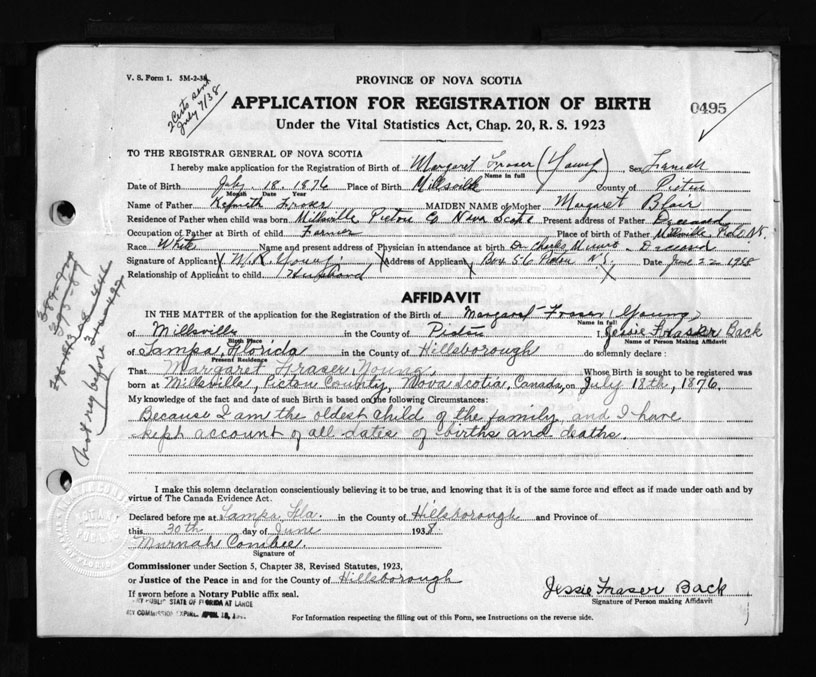 V. S. Form 1. 5M-2-38
PROVINCE OF NOVA SCOTIA
2 Certs sent
July 7/38
APPLICATION FOR REGISTRATION OF BIRTH
0495
Under the Vital Statistics Act, Chap. 20, R. S. 1923
TO THE REGISTRAR GENERAL OF NOVA SCOTIA
I hereby make application for the Registration of Birth of Margaret Fraser (Young) Sex Female
Name in full
Date of Birth July 18. 1876 Place of Birth Millsville County of Pictou
Month Date Year
Name of Father Kenneth Fraser MAIDEN NAME of Mother Margaret Blair
Residence of Father when child was born Millsville Pictou Co Nova Scotia Present address of Father Deceased
Occupation of Father at Birth of Child Farmer Place of birth of Father Millsville Pictou N.S.
Race White Name and present address of Physician in attendance at birth Dr Charles Munro - Deceased
Signature of Applicant X W.R. Young X Address of Applicant Box 56 Pictou N.S. Date June 22 1938
Relationship of Applicant to child Husband
AFFIDAVIT
IN THE MATTER of the application of the Registration of the Birth of Margaret Fraser (Young)
Name in full
of Millsville in the County of Pictou I, Jessie Fraser Back
Birth Place
Name of Person Making Affidavit
of Tampa, Florida in the County of Hillsborough do solemnly declare:
Present Residence
That Margaret Fraser Young Whose Birth is sought to be registered was
born at Millsville, Pictou County, Nova Scotia, Canada, on July 18th, 1876.
My knowledge of the fact and date of such Birth is based on the following Circumstances:
Because I am the oldest child of the family and I have
kept account of all dates of births and deaths.
not reg before
I make this solemn declaration conscientiously believing it to be true, and knowing that it is of the same force and effect as if made under oath and by
virtue of The Canada Evidence Act.
Declared before me at Tampa, Fla. in the County of Hillsborough and Province of
this 30th day of June 1938
Murnah Combee
Signature of
Commissioner under Section 5, Chapter 38, Revised Statutes, 1923,
or Justice of the Peace in and for the County of Hillsborough
Jessie Fraser Back
If sworn before a Notary Public affix seal.
Signature of Person making Affidavit
NOTARY PUBLIC STATE OF FLORIDA AT LARGE
MY COMMISSION EXPIRES APRIL
For Information respecting the filling out of this Form, see Instructions on the reverse side.